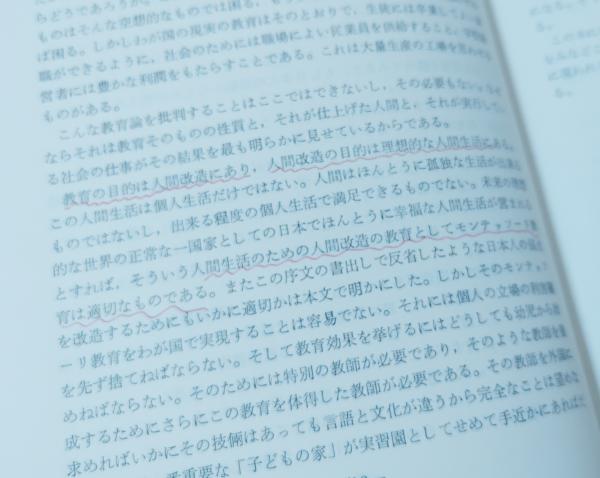 らどうであろうか。
ものはそんな空想的なものでは困る、
ば困る。しかしわが国の現実の教育はそのとおりで、生徒には卒業して
職ができるように、社会のためには職場によい従業員を供給すること、
営者には豊かな利潤をもたらすことである。これは大量生産の工場を思わせる
ものがある。
こんな教育論を批判することはここではできないし、その必要もない。
ならそれは教育そのものの性質と、それが仕上げた人間と、それが実行してい
る社会の仕事がその結果を最も明らかに見せているからである。
教育の目的は人間改造にあり、人間改造の目的は理想的な人間生活にある。
この人間生活は個人生活だけではない。人間はほんとうに孤独な生活が出来る
ものではないし、出来る程度の個人生活で満足できるものでない。未来の理想
的な世界の正常な一国家としての日本でほんとうに幸福な人間生活が営まれる
とすれば、そういう人間生活のための人間改造の教育としてモンテッソーリ教
育は適切なものである。またこの序文の書出しで反省したような日本人の
を改造するためにもいかに適切かは本文で明かにした。しかしそのモンテッソ
ーリ教育をわが国で実現することは容易でない。それには個人の立場の
を先ず捨てねばならない。そして教育効果を挙げるにはどうしても幼児から始
めねばならない。そのためには特別の教師が必要であり、そのような教師を養
成するためにさらにこの教育を体得した教師が必要である。その教師を外国に
求めればいかにその技倆はあっても言語と文化が違うから完全なことは望めな
番重要な「子どもの家」が実習園としてせめて手近かにあれば